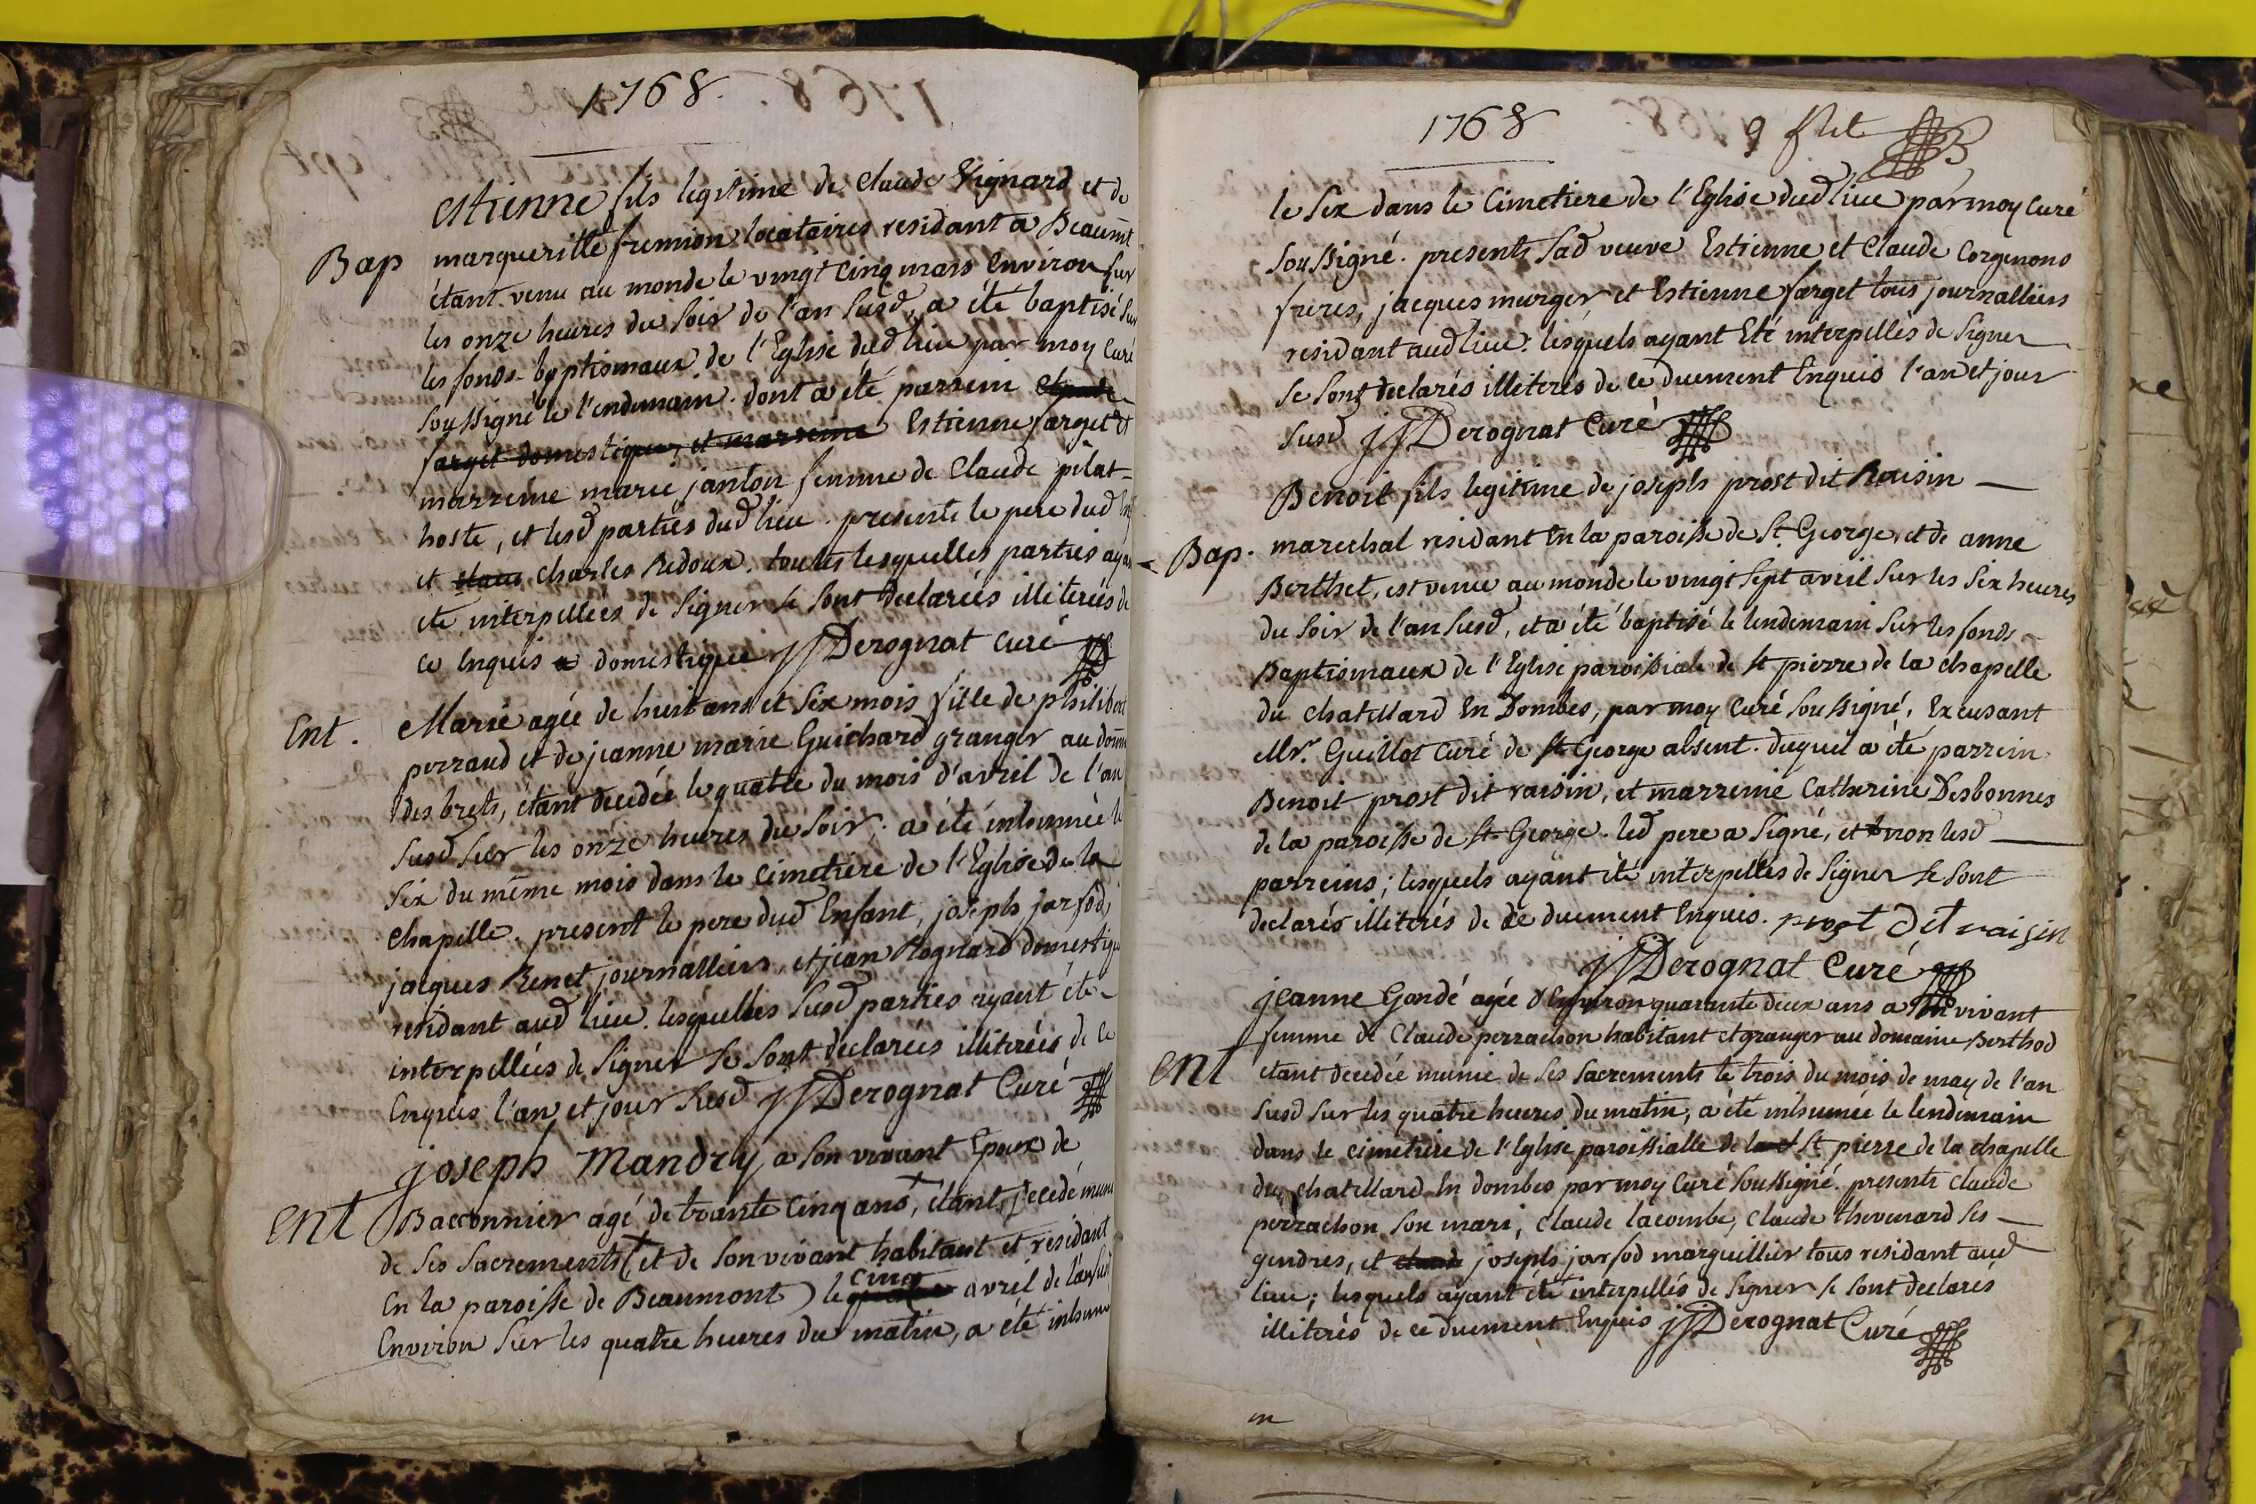 1768.
Estienne fils legitime de Claude Vignard et de
Bap
margueritte fremion locataires residant a Beaumt
étant venu au monde le vingt cinq mars environ sur
les onze heures du soir de l'an susd, a été baptisé sur
les fonds baptismaux de l'Eglise dud lieu par moy Curé
soussigné le l'endemain. dont a été parrein Claude
farget domestique, et marreine Estienne farget et
marreine marie janton femme de Claude pilat-
hoste, et lesd parties dud lieu. presents le pere dud
et Charles Redoux. toutes lesquelles parties ayant
été interpellées de signer se sont declarées illiterées de
ce Enquis domestique JJ Derognat Curé
Ent.
Marie agée de huit ans et six mois fille de philibert
perraud et de jeanne marie Guichard granger au dom
des brets, étant decedée le quatre du mois d'avril de l'an
susd sur les onze heures du soir; a été inhumée le
six du même mois dans le cimetiere de l'Eglise de la
chapelle. present le pere dud Enfant, joseph jarfod,
jacques Renet journalliers, et jean Rognard domestique
residant aud lieu. lesquelles susd parties ayant été
interpellées de signer se sont declarées illiterées de ce
Enquis l'an et jour susd JJ Derognat Curé
joseph Mandry, a son vivant Epoux de
Ent
Bacconnier agé de trante cinq ans, étant decedé muni
de ses sacrements (et de son vivant habitant et residant
cinq
en la paroisse de Beaumont) le quatre avril de l'an susd
Environ sur les quatre heures du matin, a été inhumé
1768
9 
le six dans le Cimetiere de l'Eglise dud lieu par moy Curé
soussigné. presents sad veuve Estienne et Claude Corgenons
freres, jacques murger et Estienne farget tous journalliers
residant aud lieu: lesquels ayant Eté interpellés de signer
se sont declarés illiterés de ce duement Enquis l'an et jour
susd JJ Derognat Curé
Benoit fils legitime de joseph prost dit Raisin
Bap.
marechal residant En la paroisse de St George, et de anne
Berthet, est venu au monde le vingt sept avril sur les six heures
du soir de l'an susd, et a été baptisé le lendemain sur les fonds
Baptismaux de l'Eglise paroissiale de st pierre de la chapelle
du chatellard En Dombes, par moy Curé soussigné, Excusant
Mr. Guillot Curé de St George absent. duquel a été parrein
Benoit prost dit raisin, et marreine Catherine Desbonnes
de la paroisse de St George. led pere a signé, et non lesd
parreins; lesquels ayant été interpellés de signer se sont
declarés illiterés de ce duement Enquis. prost dit raisin
JJ Derognat Curé
jeanne Gondé agée d'Environ quarante deux ans a son vivant
femme de Claude perrachon habitant et granger au domaine Berthod
Ent
étant decedée munie de ses sacrements le trois du mois de may de l'an
susd sur les quatre heures du matin, a été inhumée le lendemain
dans le cimetiere de l'Eglise paroissialle de la st pierre de la chapelle
du chatellard En dombes par moy Curé soussigné. presents claude
perrachon son mari, claude lacombe, claude thevenard ses
gendres, et claude joseph jarfod marguillier tous residant aud
lieu; lesquels ayant été interpellés de signer se sont declarés
illiterés de ce duement Enquis JJ Derognat Curé
m